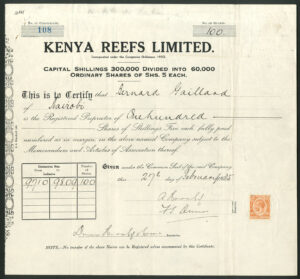 No. of Certificate.
108
No. of Shares.
100
KENYA REEFS LIMITED.
CAPITAL SHILLINGS 300,000 DIVIDED INTO 60,000
ORDINARY SHARES OF SHS. 5 EACH.
This is to Certify that Bernard Gailland
of Nairobi
is the Registered Proprietor of Onehundred
Shares of Shillings Five each fully paid
numbered as in margin in the above-named Company subject to the
Memorandum and Articles of Association thereof.
Given under the Common Seal of the said Company
this 27th day of February 1935
NOTE.—No transfer of the above Shares can be Registered unless accompanied by this Certificate.